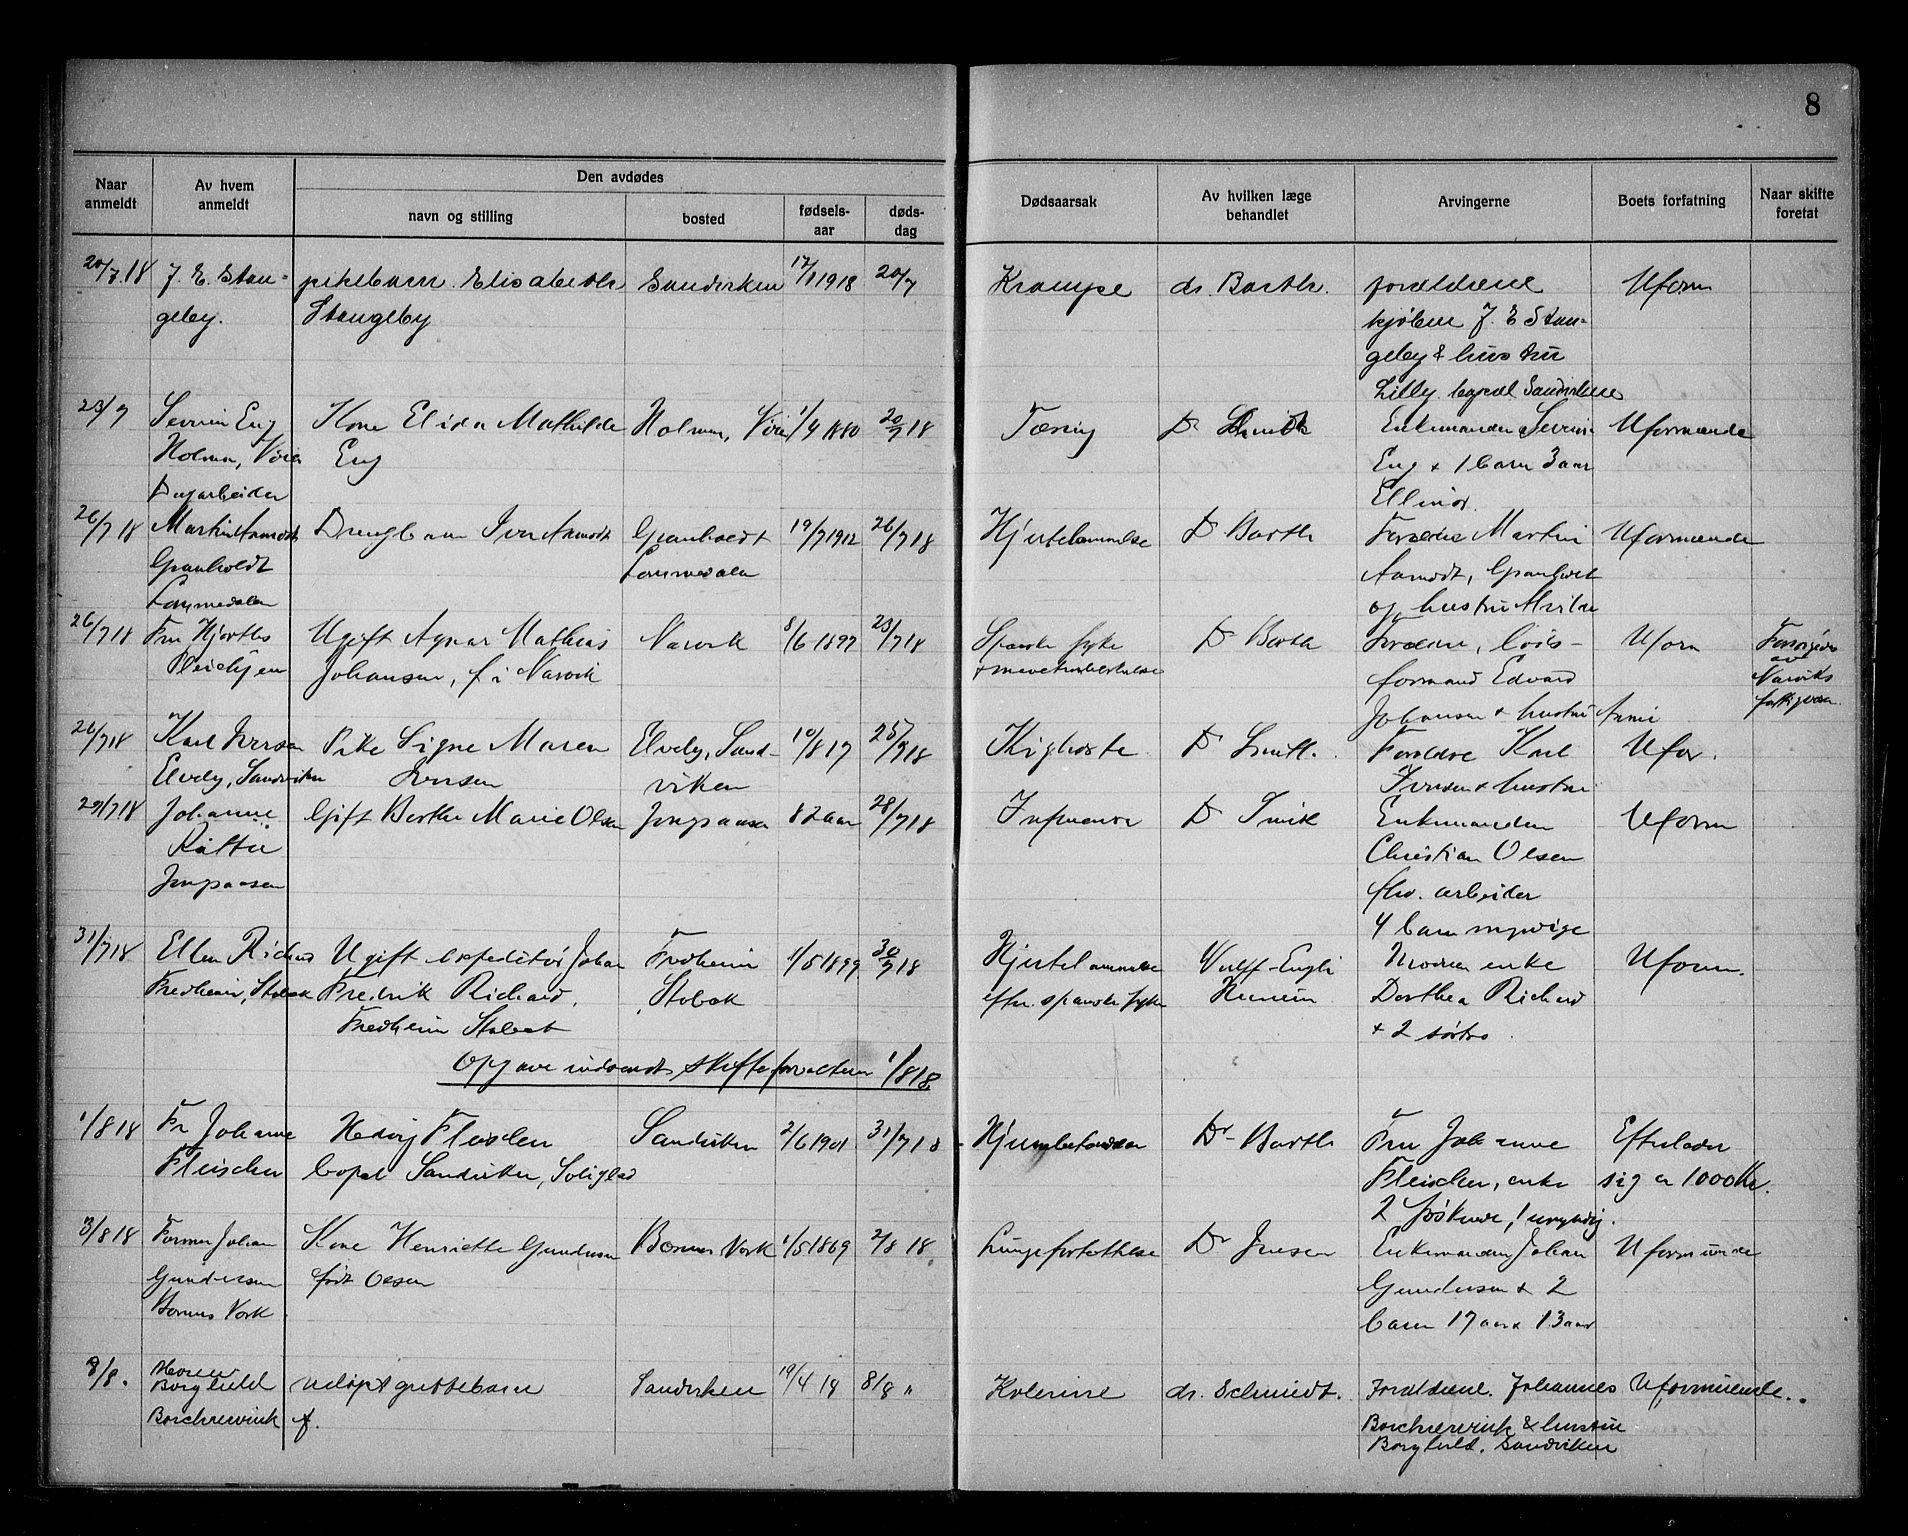 8
Naar anmeldt
Av hvem anmeldt
Den avdødes
navn og stilling
bosted
fødsels-aar
døds-dag
Dødsaarsak
Av hvilken læge behandlet
Arvingerne
Boets forfatning
Naar skifte foretat
20/7.18 J. E. Stan= pikebarn Elisabeth Sandviken 17/1 1918 20/7 Krampe dr. Barth. forældrene Uform
geby. Stangeby kjøbm J. E Stan=
geby & hustru
Lilly Sandviken
23/7 Severin Eng Kone Elida Mathilde Holmen, 1/4 1880 20/7 18 Tæring Dr Enkemanden Severin Uformuende
Holmen, Eng Eng + 1 barn 3 aar
Dagarbeider Ellinor.
26/7 18 Martin Aamodt Drengbarn Iver Aamodt Granholdt 19/7 1912 26/7 18 Hjertelammelse Dr Barth Forældre Martin Uformuende
Granholdt Lommedalen Aamodt,
Lommedalen og hustru
26/7 18 Fru Hjorths Ugift Agnar Mathias Narvik 8/6 1897 23/7 18 Spanske syke Dr Barth Forældre, Uform Forsørgedes
Pleiehjem Johansen, f i Narvik formand Edvard av
Johansen + hustru Anna Narviks
26/7 18 Karl Iversen Pike Signe Maren Elvely, Sand- 10/8 17 25/7 18 Kighoste Dr Smith. Forældre Karl Ufor.
Elvely, Sandviken Iversen viken Iversen + hustru
29/7 18 Johanne Gift Berthe Marie Olsen Jongsaasen 82 aar 28/7 18 Influensa Dr Smith Enkemanden Uform
Christian Olsen
Jongsaasen fhv. arbeider
4 barn myndige
31/7 18 Ellen Richard Ugift Johan Fredheim 1/5 1899 30/7 18 Hjertelammelse Wulff-Engh Moderen enke Uform.
Fredheim, Stabæk Fredrik Richard. Stabæk efter spanske syke Dorthea Richard
Fredheim Stabæk + 2 søstre.
Opgave indsendt skifteforvalteren 1/8 18
1/8 18 Fr Johanne Hedvig Fleischer Sandviken 2/6 1901 31/7 18 Dr Barth Fru Johanne Efterlader
Fleischer Sandviken, Soliglad Fleischer, enke sig ca 1000 Kr.
2 søskende, 1 umyndig.
3/8 18 Former Johan Kone Henriette Gundersen Bærums Verk 1/5 1869 2/8 18 Dr Jensen Enkemanden Johan Uformuende
Gundersen født Olsen Gundersen + 2
Bærums Verk. barn 17 aar + 13 aar
8/8. Borghild udøpt guttebarn Sandviken 19/4 18 8/8 " Kolerine dr. Schmidt. Forældrene. Johannes Uformuende.
Borchrevink f. Borchrevink & hustru
Borghild. Sandviken